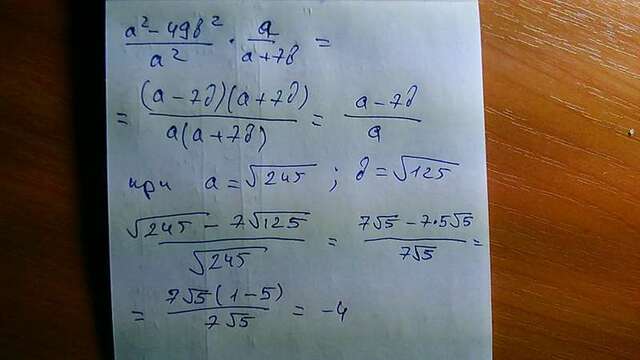 (a² - 49b²)/a² · a/(a+7b) =
= ((a-7b)(a+7b))/(a(a+7b)) = (a-7b)/a
при a = √245 ; b = √125
(√245 - 7√125)/√245 = (7√5 - 7·5√5)/(7√5) =
= (7√5(1-5))/(7√5) = -4